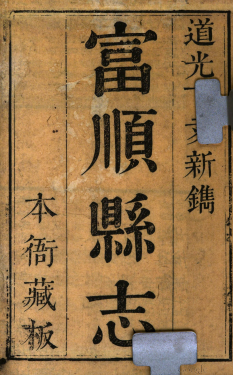 道光 新鐫
富順縣志
本衙藏板